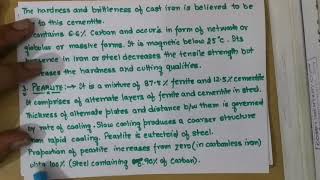 The hardness and brittleness of cast iron is believed to be
to this cementite.
contains 6.6% carbon and occurs in form of network or
globular or massive forms. It is magnetic below 25°c. Its
in iron or steel decreases the tensile strength but
the hardness and cutting qualities.
PEARLITE:→ It is a mixture of 87.5% ferrite and 12.5% cementite
It comprises of alternate layers of ferrite and cementite in steel.
Thickness of alternate plates and distance b/w them is governed
by rate of cooling. Slow cooling produces a coarser structure
than rapid cooling. Pearlite is eutectoid of steel.
Proportion of pearlite increases from zero (in carbonless iron)
upto 100% (Steel containing .90% of carbon).